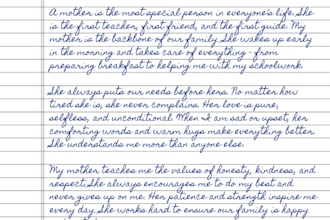 A mother is the most special person in everyone's life. She
is the first teacher, first friend, and the first guide. My
mother is the backbone of our family. She wakes up early
in the morning and takes care of everything - from
preparing breakfast to helping me with my schoolwork.
She always puts our needs before hers. No matter how
tired she is, she never complains. Her love is pure,
selfless, and unconditional. When I am sad or upset, her
comforting words and warm hugs make everything better.
She understands me more than anyone else.
My mother teaches me the values of honesty, kindness, and
respect. She always encourages me to do my best and
never gives up on me. Her patience and strength inspire me
every day. She works hard to ensure our family is happy